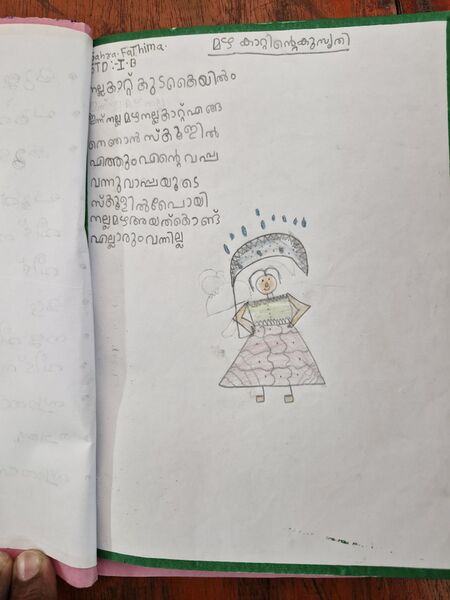 Sahra Fathima.
STD :- I B
മഴ കാറ്റിന്റെ കുസൃതി
നല്ല കാറ്റ് കുട കൈയിൽം
ഇന്ന് നല്ല മഴ നല്ല കാറ്റ് എങ്ങ
നെ ഞാൻ സ്കൂളിൽ
എത്തും എന്റെ വപ്പ
വന്നു വാപ്പയൂടെ
സ്കൂളിൽ പോയി
നല്ല മഴ അയത്കൊണ്ട്
എല്ലാരും വന്നില്ല